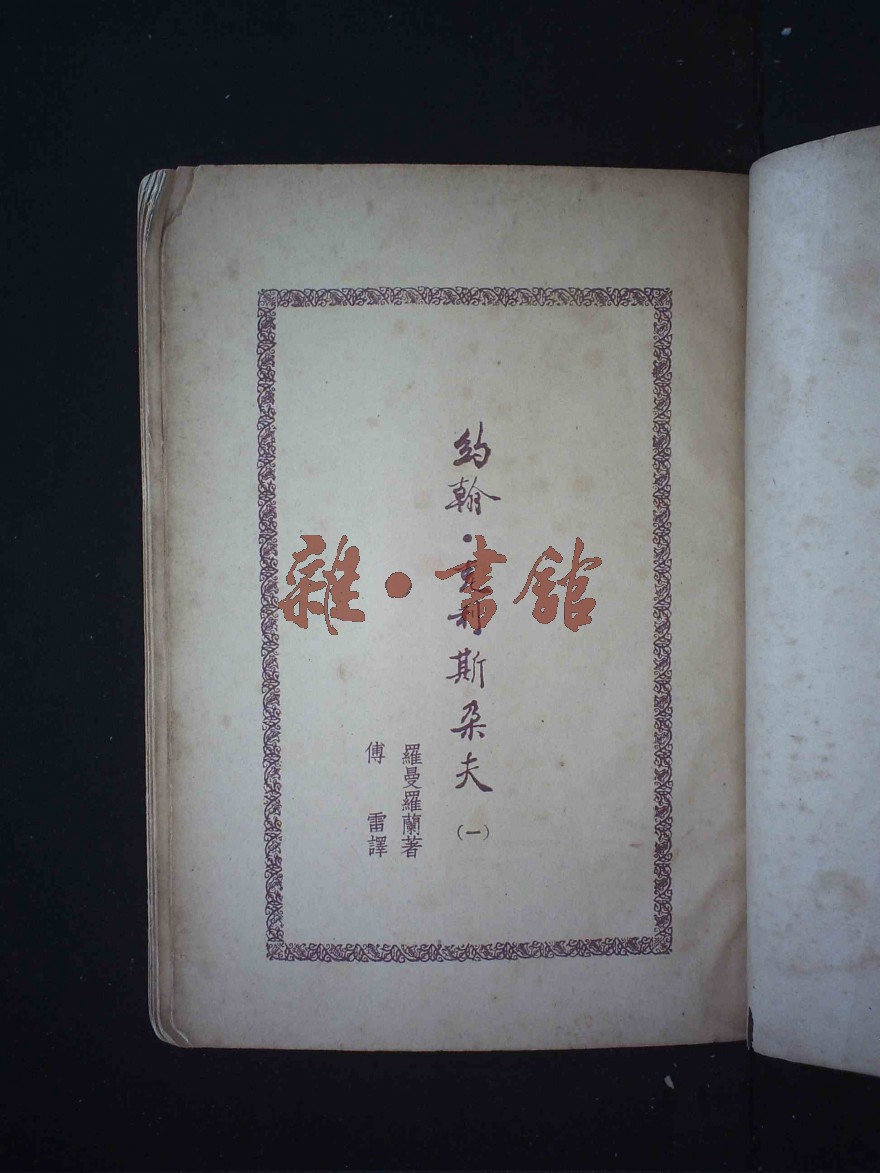 約翰·克利斯朵夫
(一)
羅曼羅蘭著
傅雷譯
雜·書舘